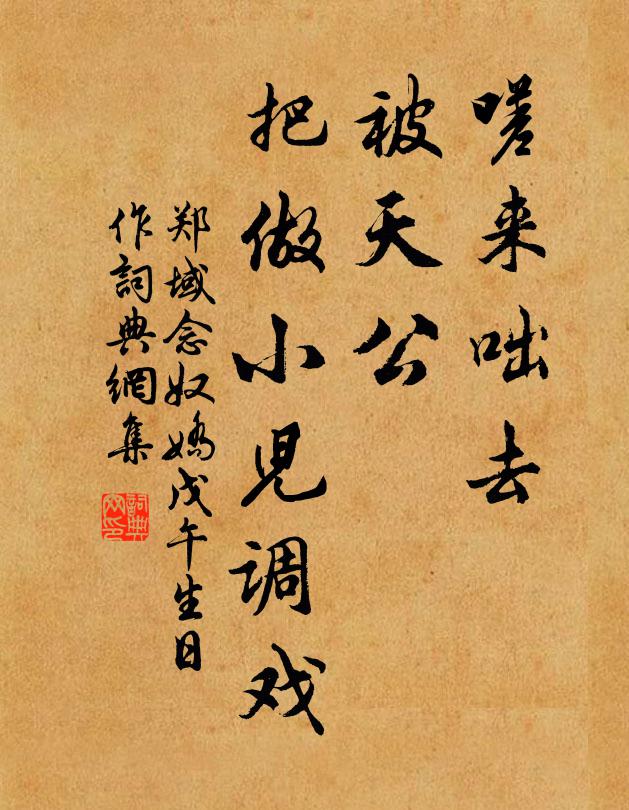 嗟来咄去
被天公
把做小兒调戏
郑域念奴嬌戊午生日
作詞典網集
詞典网印